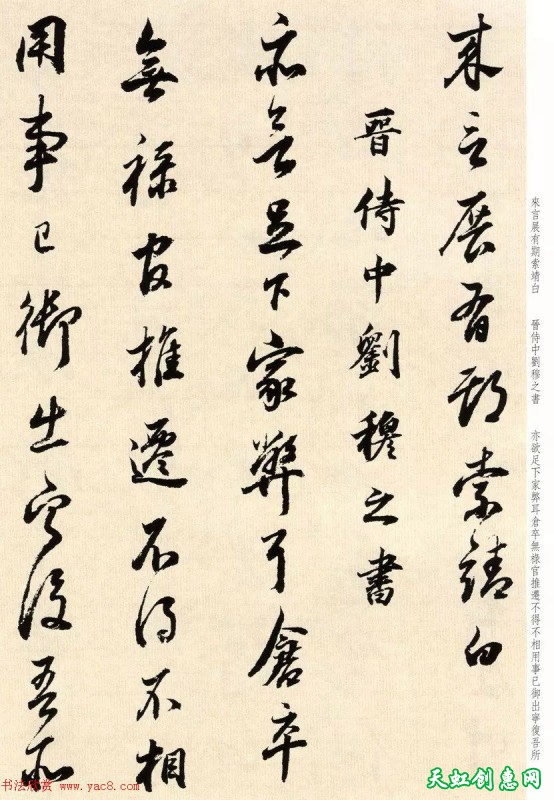 來言展有期索靖白
晉侍中劉穆之書
亦欲足下家弊耳倉卒
無祿官推遷不得不相
用事已御出寧復吾所
來言展有期索靖白 晉侍中劉穆之書 亦欲足下家弊耳倉卒無祿官推遷不得不相用事已御出寧復吾所
书法欣赏 www.yac8.com
天虹创惠网